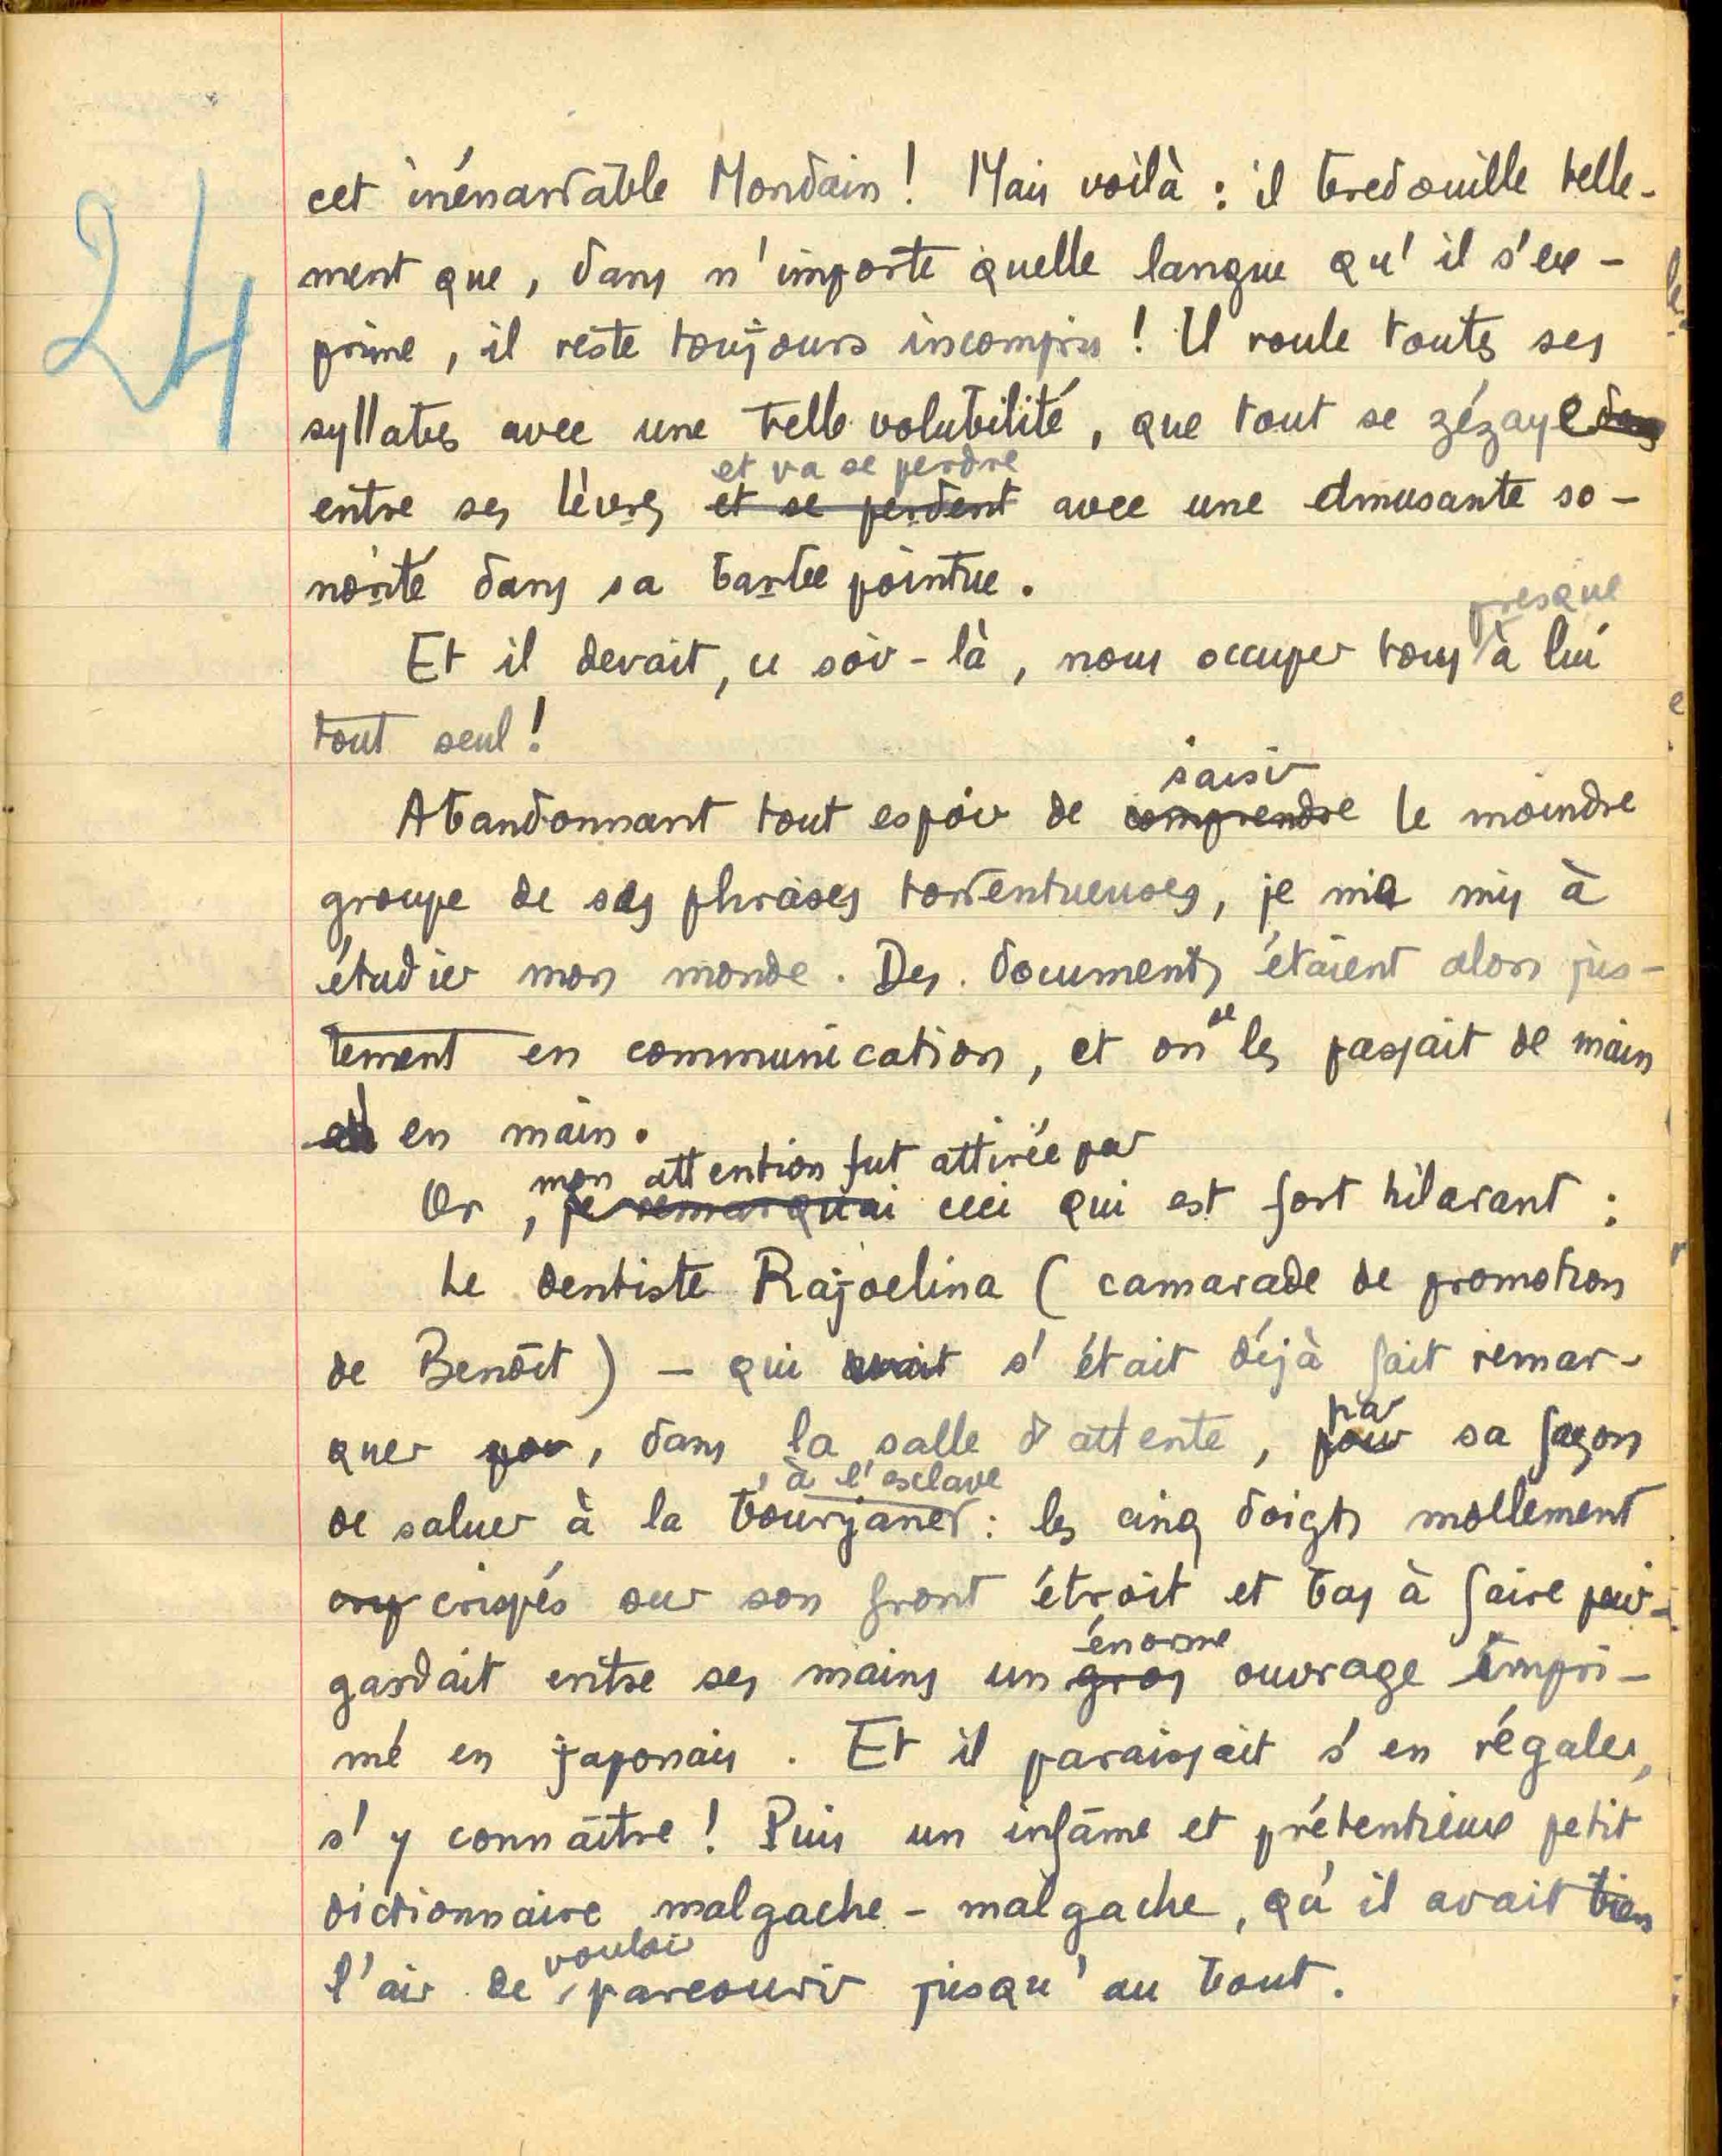 24
cet inénarrable Mondain ! Mais voilà : il bredouille telle-
ment que, dans n'importe quelle langue qu'il s'ex-
prime, il reste toujours incompris ! Il roule toutes ses
syllabes avec une telle volubilité, que tout se zézaye
et va se perdre
entre ses lèvres et se perdent avec une amusante so-
norité dans sa barbe pointue.
presque
Et il devait, ce soir-là, nous occuper tous à lui
tout seul !
saisir
Abandonnant tout espoir de comprendre le moindre
groupe de ses phrases torrentueuses, je me mis à
étudier mon monde. Des documents étaient alors jus-
tement en communication, et on se les passait de main
en main.
mon attention fut attirée par
Or, je remarquai ceci qui est fort hilarant :
Le dentiste Rajoelina (camarade de promotion
de Benoît) - qui avait s'était déjà fait remar-
par
quer par, dans la salle d'attente, pour sa façon
, à l'esclave
de saluer à la bourjane : les cinq doigts mollement
crispés sur son front étroit et bas à faire peur -
énorme
gardait entre ses mains un gros ouvrage impri-
mé en japonais. Et il paraissait s'en régaler,
s'y connaître ! Puis un infâme et prétentieux petit
dictionnaire malgache-malgache, qu'il avait bien
vouloir
l'air de parcourir jusqu'au bout.